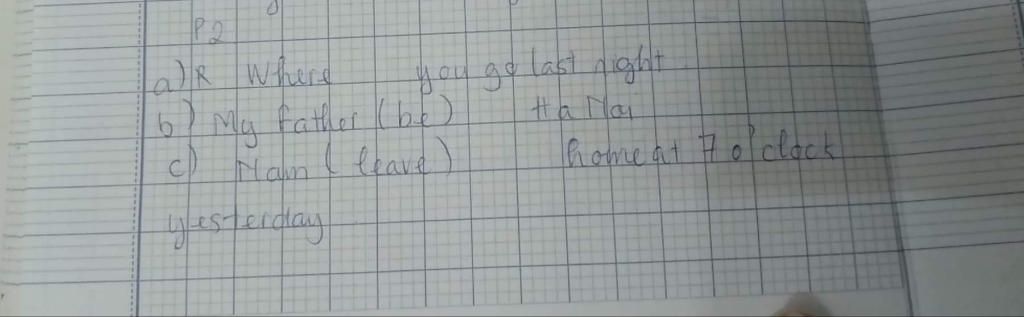 P2
a) R Where you go last night
b) My father (be) Ha Noi
c) Nam (leave) home at 7 o'clock
yesterday